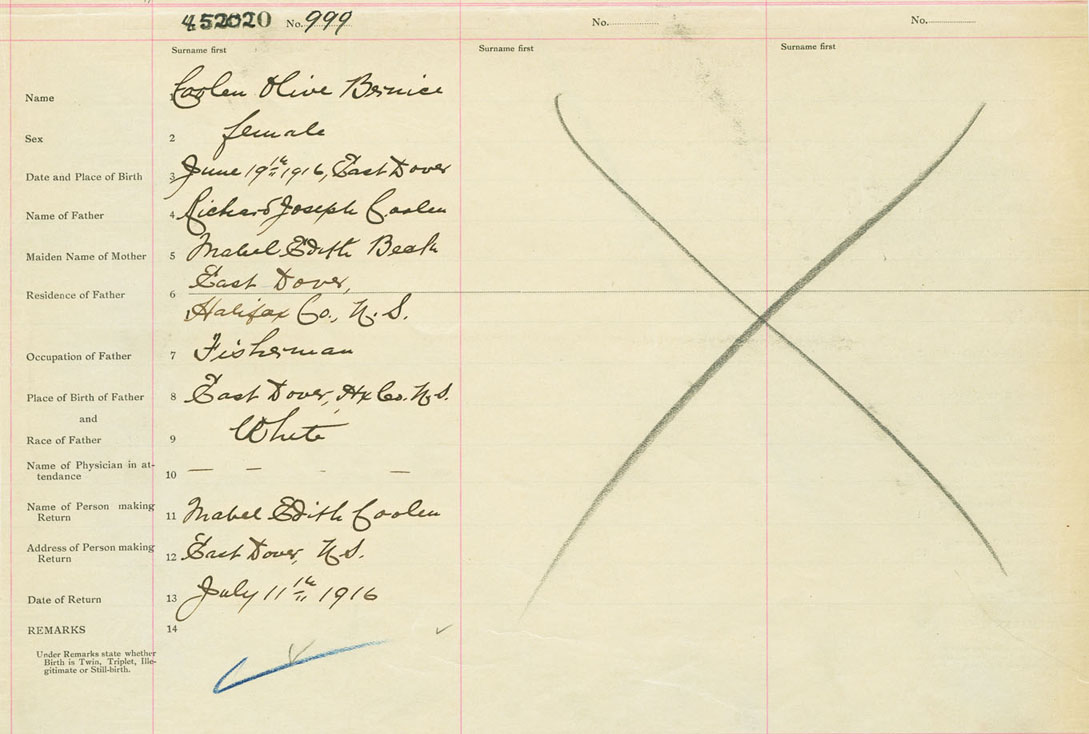 452020 No. 999 No. No.
Surname first Surname first Surname first
Name 1 Coolen Olive Bernice
Sex 2 female
Date and Place of Birth 3 June 19th 1916, East Dover
Name of Father 4 Richard Joseph Coolen
Maiden Name of Mother 5 Mabel Edith
East Dover,
Residence of Father 6
Halifax Co., N.S.
Occupation of Father 7 Fisherman
Place of Birth of Father 8 East Dover, Hx Co. N.S.
and
Race of Father 9 White
Name of Physician in at-
tendance 10 — — - —
Name of Person making
Return 11 Mabel Edith Coolen
Address of Person making
Return 12 East Dover, N.S.
Date of Return 13 July 11th 1916
REMARKS 14
Under Remarks state whether
Birth is Twin, Triplet, Ille-
gitimate or Still-birth.